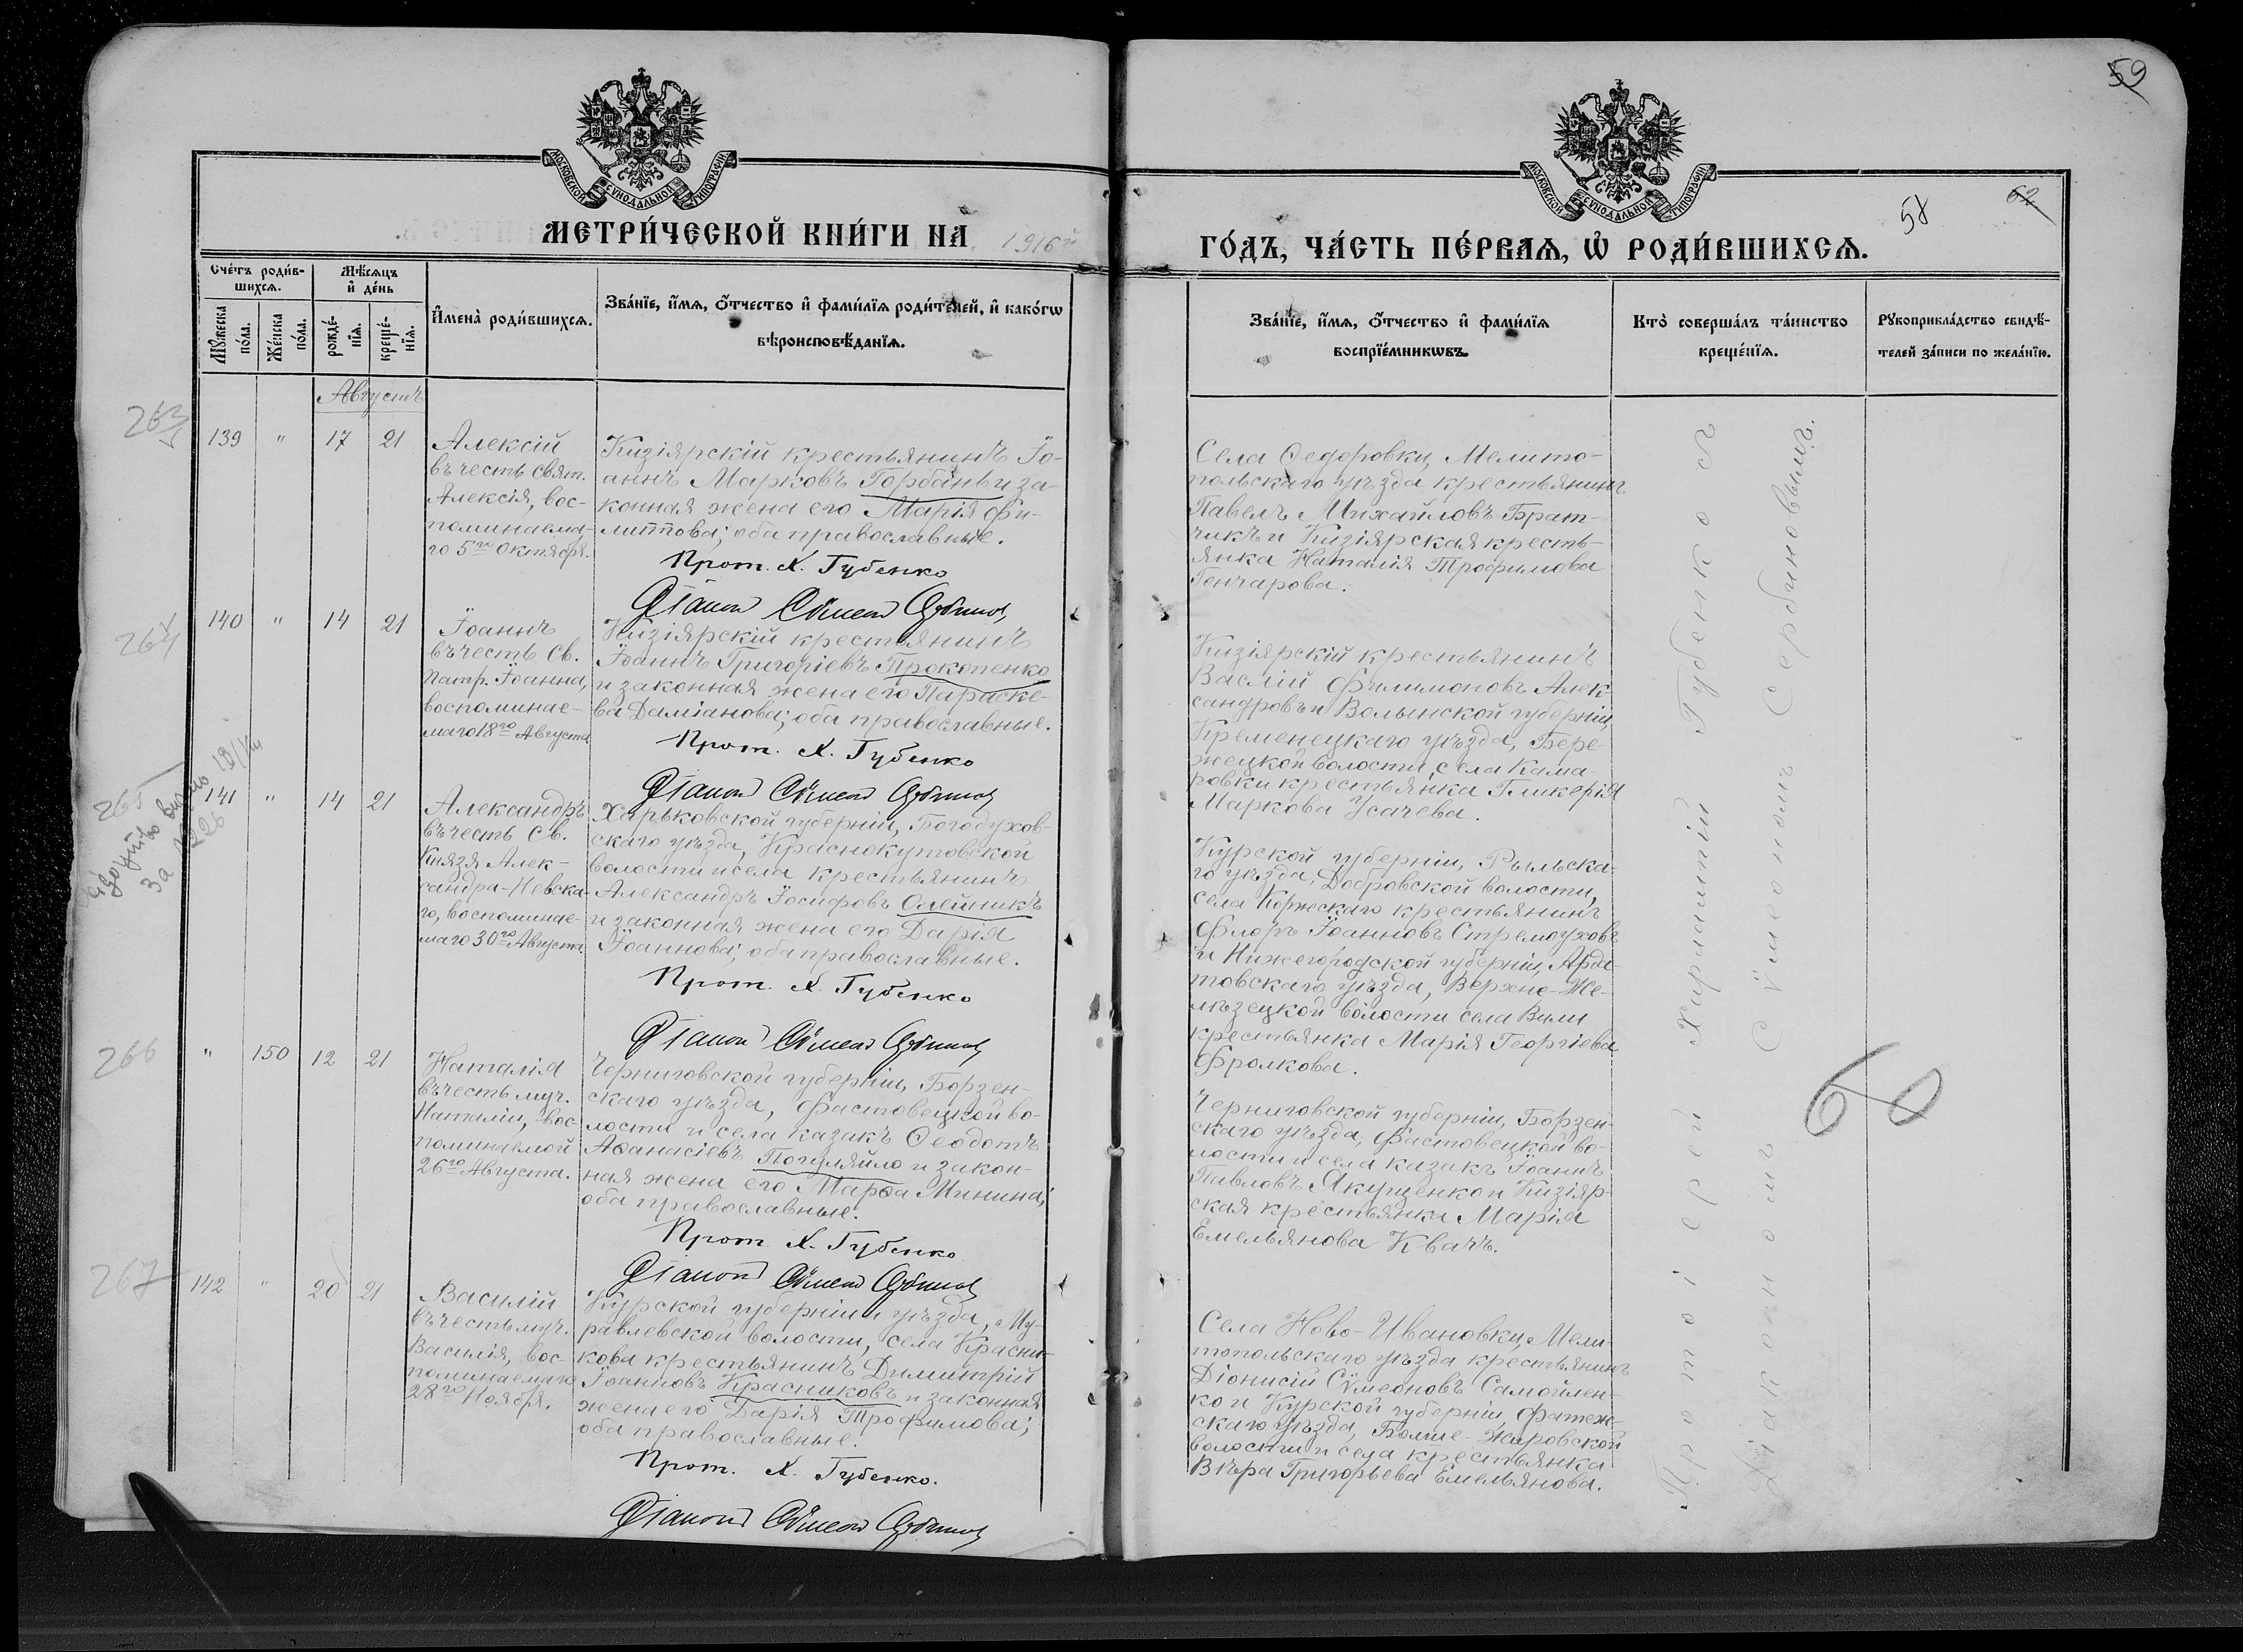 59
МОСКОВСКОЙ СѴНОДАЛЬНОЙ ТИПОГРАФІИ
МОСКОВСКОЙ СѴНОДАЛЬНОЙ ТИПОГРАФІИ
МЕТРИ́ЧЕСКОЙ КНИ́ГИ НА 1916й
ГО́ДЪ, ЧА́СТЬ ПЕ́РВАѦ, Ѡ҆ РОДИ́ВШИХСѦ.
58
62
Сче́тъ роди́в-
шихсѧ.
Мꙋ́жеска
по́ла.
Же́нска
по́ла.
Мѣ́сѧцъ
и҆ де́нь
рожде́-
нїѧ.
креще́-
нїѧ.
И҆мена̀ роди́вшихсѧ.
Зва́нїе, и҆́мѧ, ѻ҆́тчество и҆ фами́лїѧ роди́телей, и҆ како́гѡ
вѣроисповѣ́данїѧ.
Зва́нїе, и҆́мѧ, ѻ҆́тчество и҆ фами́лїѧ
воспрїе́мникѡвъ.
Кто̀ соверша́лъ та́инство
креще́нїѧ.
Рꙋкоприкла́дство свидѣ́-
телей за́писи по жела́нїю.
Августъ
263
139 " 17 21
Алексій
въ честь свят.
Алексія, вос-
поминаема-
го 5го Октября.
Кизіярскій крестьянинъ Іо-
аннъ Марковъ Горбань и за-
конная жена его Марія Фи-
липпова; оба православные.
Прот. Х. Губенко
Діаконъ Сѵмеонъ Сербиновъ
Села Ѳедоровки, Мелито-
польскаго уѣзда крестьянинъ
Павелъ Михайловъ Брат-
чикъ и Кизіярская кресть-
янка Наталія Трофимова
Гончарова.
264
140 " 14 21
Іоаннъ
въ честь Св.
Патр. Іоанна,
воспоминае-
маго 18го Августа
Кизіярскій крестьянинъ
Іоаннъ Григоріевъ Прокопенко
и законная жена его Параске-
ва Даміанова; оба православные.
Прот. Х. Губенко
Діаконъ Сѵмеонъ Сербиновъ
Кизіярскій крестьянинъ
Васлій Филимоновъ Алек-
сандровъ и Волынской губерніи,
Кременецкаго уѣзда, Бере-
жецкой волости, села Кама-
ровки крестьянка Гликерія
Маркова Усачева.
265
141 " 14 21
Александръ
въ честь Св.
Князя Алек-
сандра-Невска-
го, воспоминае-
маго 30го Августа
Харьковской губерніи, Богодухов-
скаго уѣзда, Краснокутовской
волости и села крестьянинъ
Александръ Іосифовъ Олейникъ
и законная жена его Дарія
Іоаннова; оба православные.
Прот. Х. Губенко
Діаконъ Сѵмеонъ Сербиновъ
Курской губерніи, Рыльска-
го уѣзда, Добровской волости,
села Коржескаго крестьянинъ
Флоръ Іоанновъ Стремоуховъ
и Нижегородской губерніи, Арда-
товскаго уѣзда, Верхне-Же-
лѣзецкой волости села Вили
крестьянка Марія Георгіева
Фролкова.
266
" 150 12 21
Наталія
въ честь муч.
Наталіи, вос-
поминаемой
26го Августа.
Черниговской губерніи, Борзен-
скаго уѣзда, Фастовецкой во-
лости и села казакъ Ѳеодотъ
Аѳанасіевъ Погуляйло и закон-
ная жена его Марѳа Минина;
оба православные.
Прот. Х. Губенко
Діаконъ Сѵмеонъ Сербиновъ
Черниговской губерніи, Борзен-
скаго уѣзда, Фастовецкой во-
лости и села казакъ Іоаннъ
Павловъ Якущенко и Кизіяр-
ская крестьянка Марія
Емельянова Квачъ.
267
142 " 20 21
Василій
въ честь муч.
Василія, вос-
поминаемаго
28го Ноября.
Курской губерніи и уѣзда, Му-
равлевской волости, села Красни-
кова крестьянинъ Димитрій
Іоанновъ Красниковъ и законная
жена его Дарія Трофимова;
оба православные.
Прот. Х. Губенко.
Діаконъ Сѵмеонъ Сербиновъ
Села Ново-Ивановки, Мели-
топольскаго уѣзда крестьянинъ
Діонисій Сѵмеоновъ Самойлен-
ко и Курской губерніи, Фатеж-
скаго уѣзда, Больше-Жировской
волости и села крестьянка
Вѣра Григорьева Емельянова.
Протоіерей Харлампій Губенко съ
Діакономъ Сѵмеономъ Сербиновымъ.